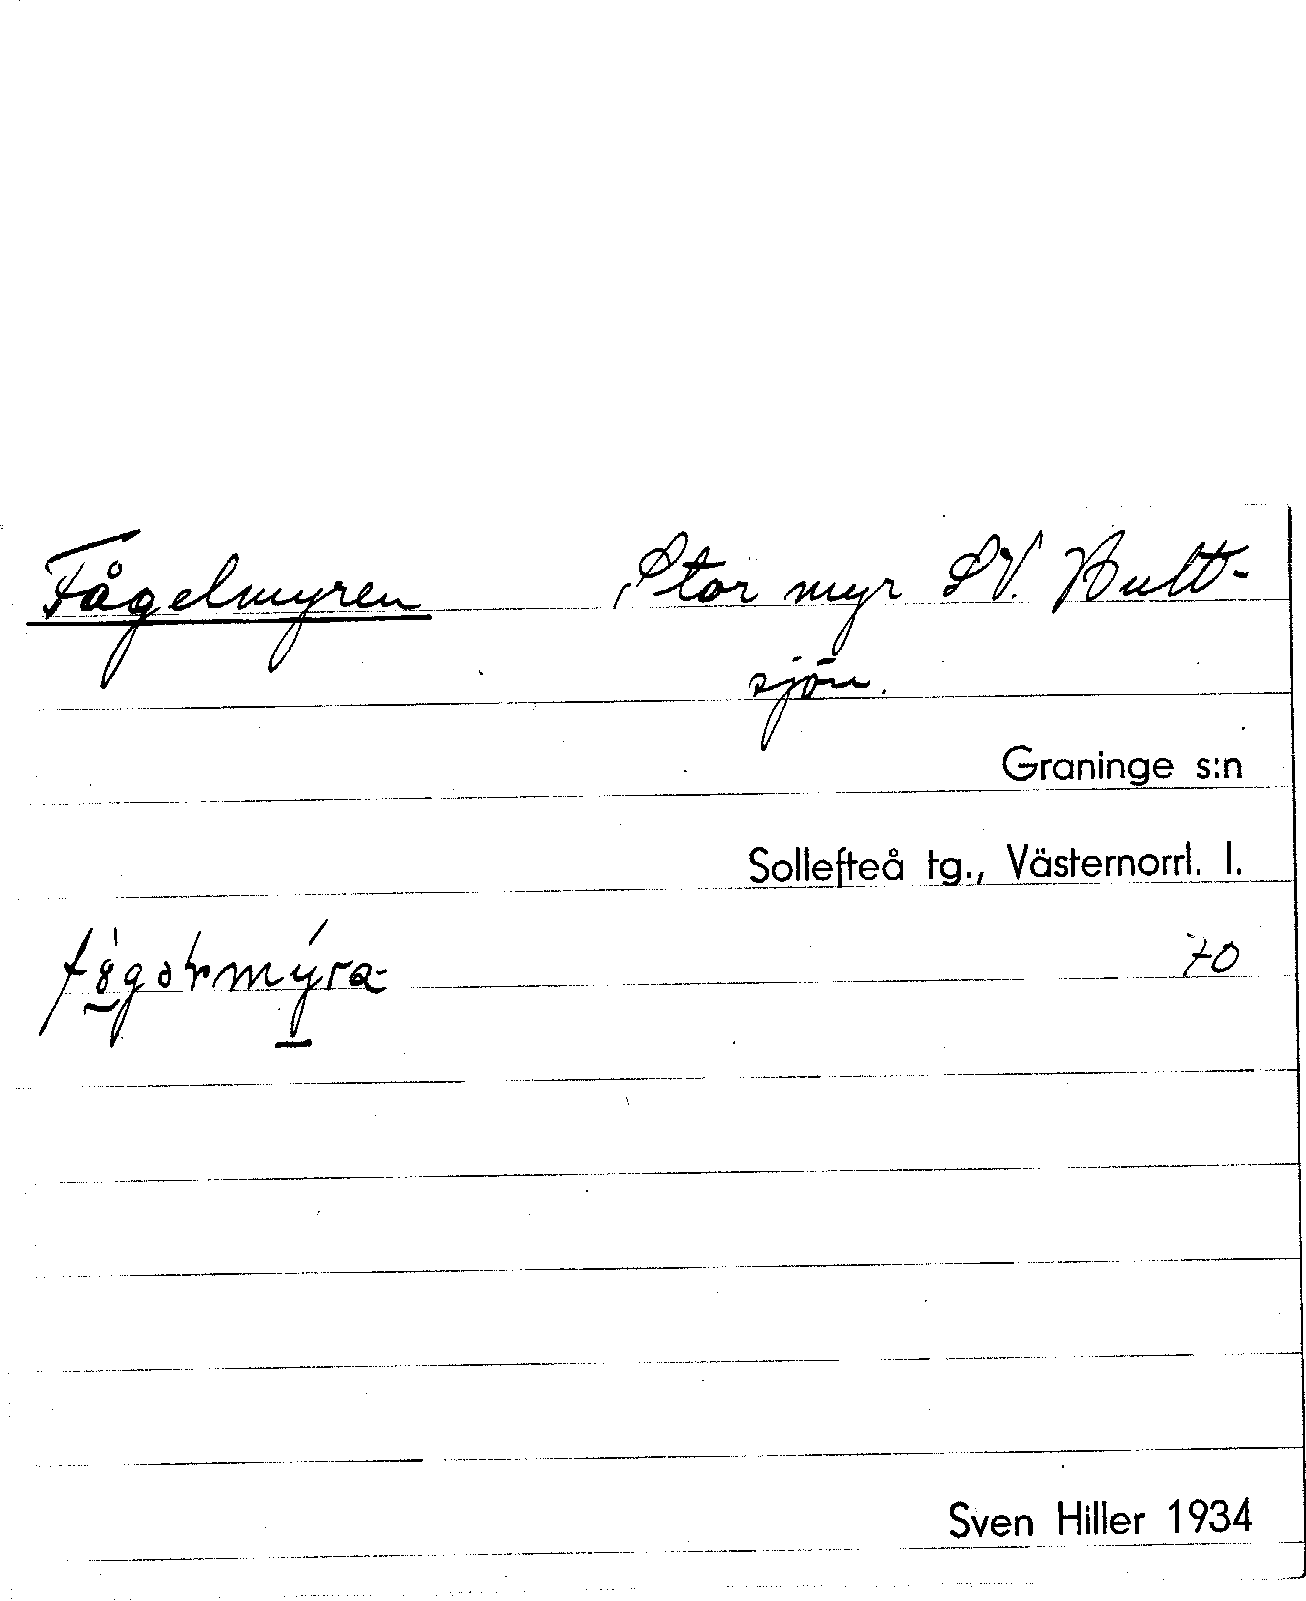 Fågelmyren Stor myr SV. Hult-
sjön.
Graninge s:n
Sollefteå tg., Västernorrl. l.
70
Sven Hiller 1934